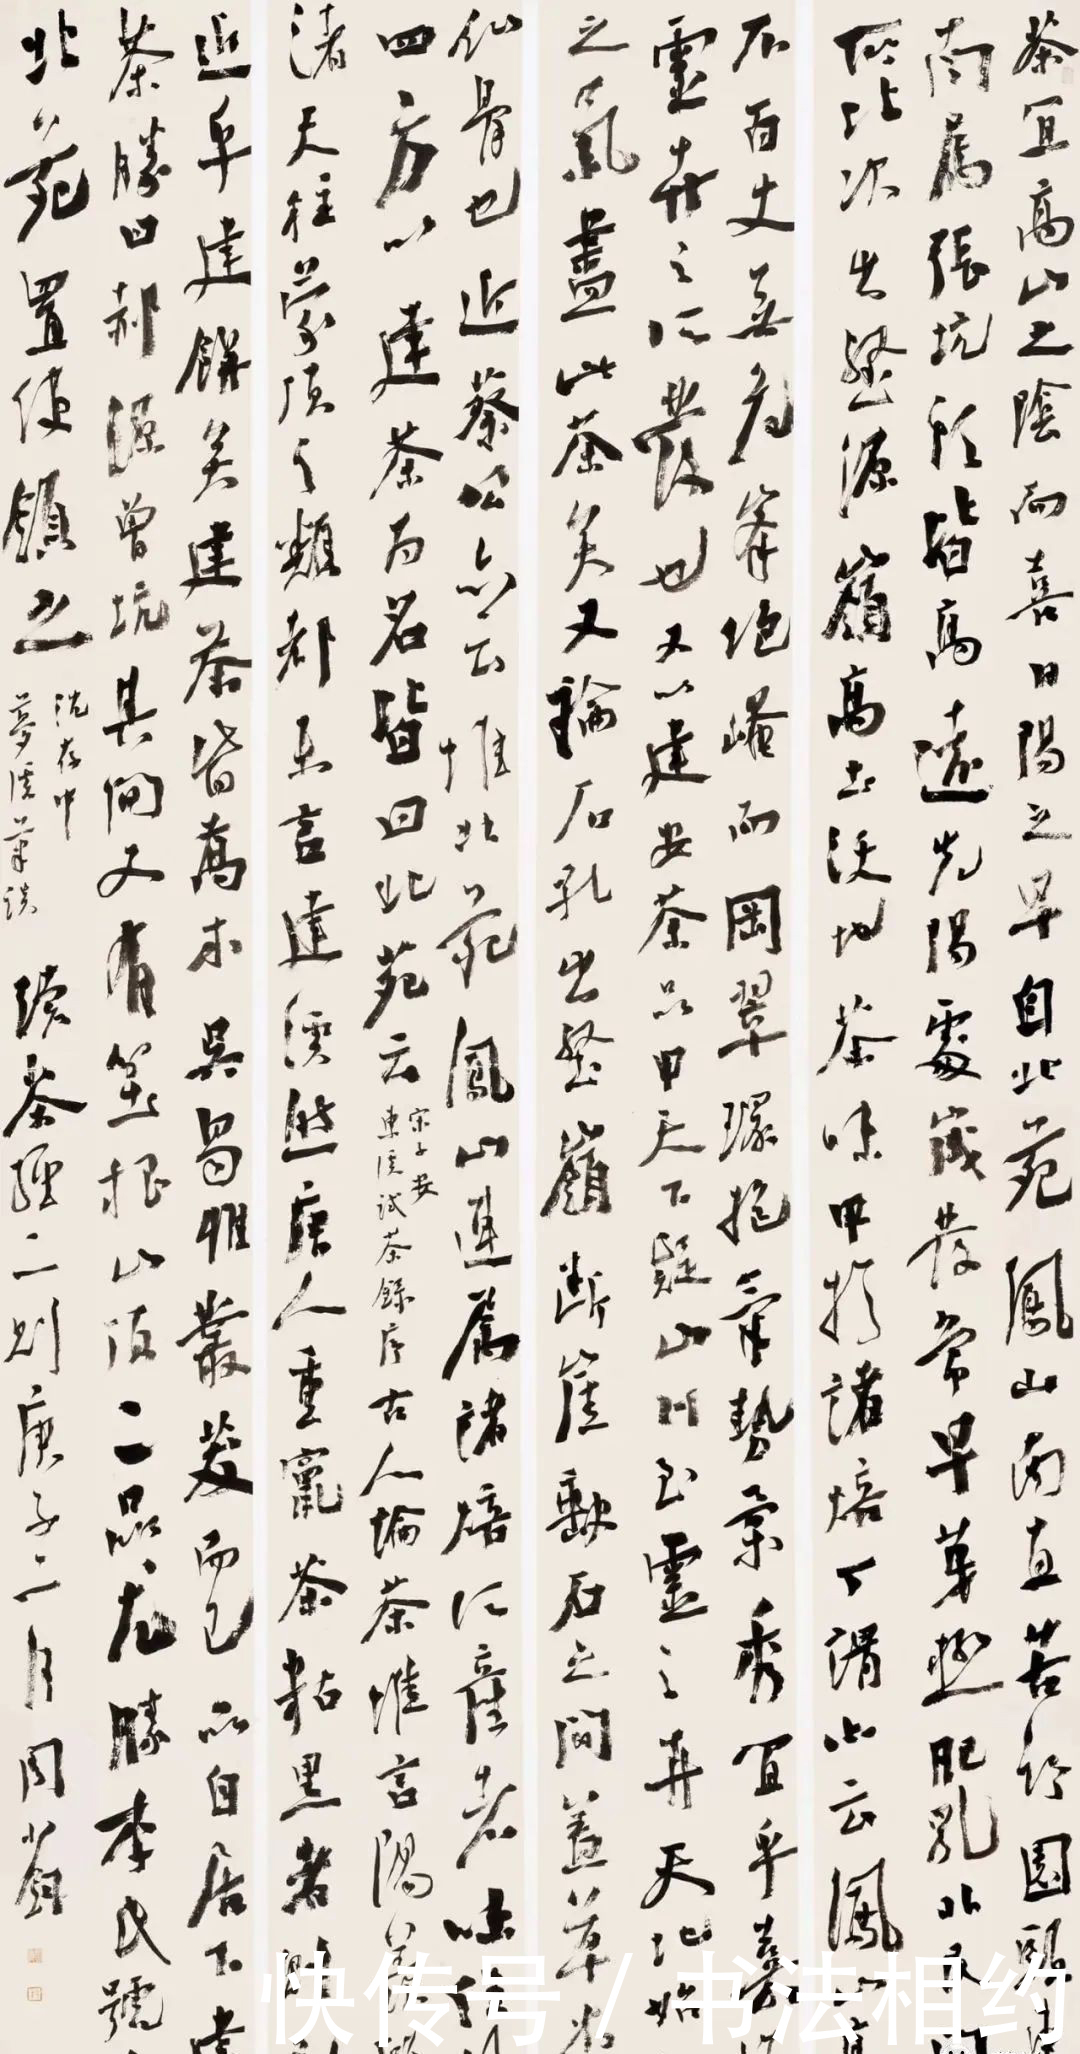 茶宜高山之陰而喜日陽之早自北苑鳳山南直苦竹園頭東
南屬張坑頭皆高遠先陽處歲發常早芽極肥乳非民間
所比次出壑源嶺高土沃地茶味甲於諸焙丁謂亦云鳳山高
不百丈無危峰絕崦而岡翠環抱氣勢柔秀宜乎嘉植
靈卉之所發也又以建安茶品甲天下疑山川至靈之卉天地始
之氣盡此茶矣又論石乳出壑嶺斷崖缺石之間蓋草木
仙骨也近蔡公亦云惟北苑鳳山連屬諸焙所產者味佳
四方以建茶為名皆曰北苑云
宋子安
東溪試茶錄序
古人論茶惟言陽羨顧
渚天柱蒙頂之類都未言建溪然唐人重竄茶粘黑者則
近乎建餅矣建茶皆喬木吳蜀惟叢茭而已品自居下建
茶勝曰郝源曾坑其間又有坌根山頂二品尤勝李氏號
北苑置使領之
沈存中
夢溪筆談
續茶經二則庚子二月周
快传号 / 书法相约